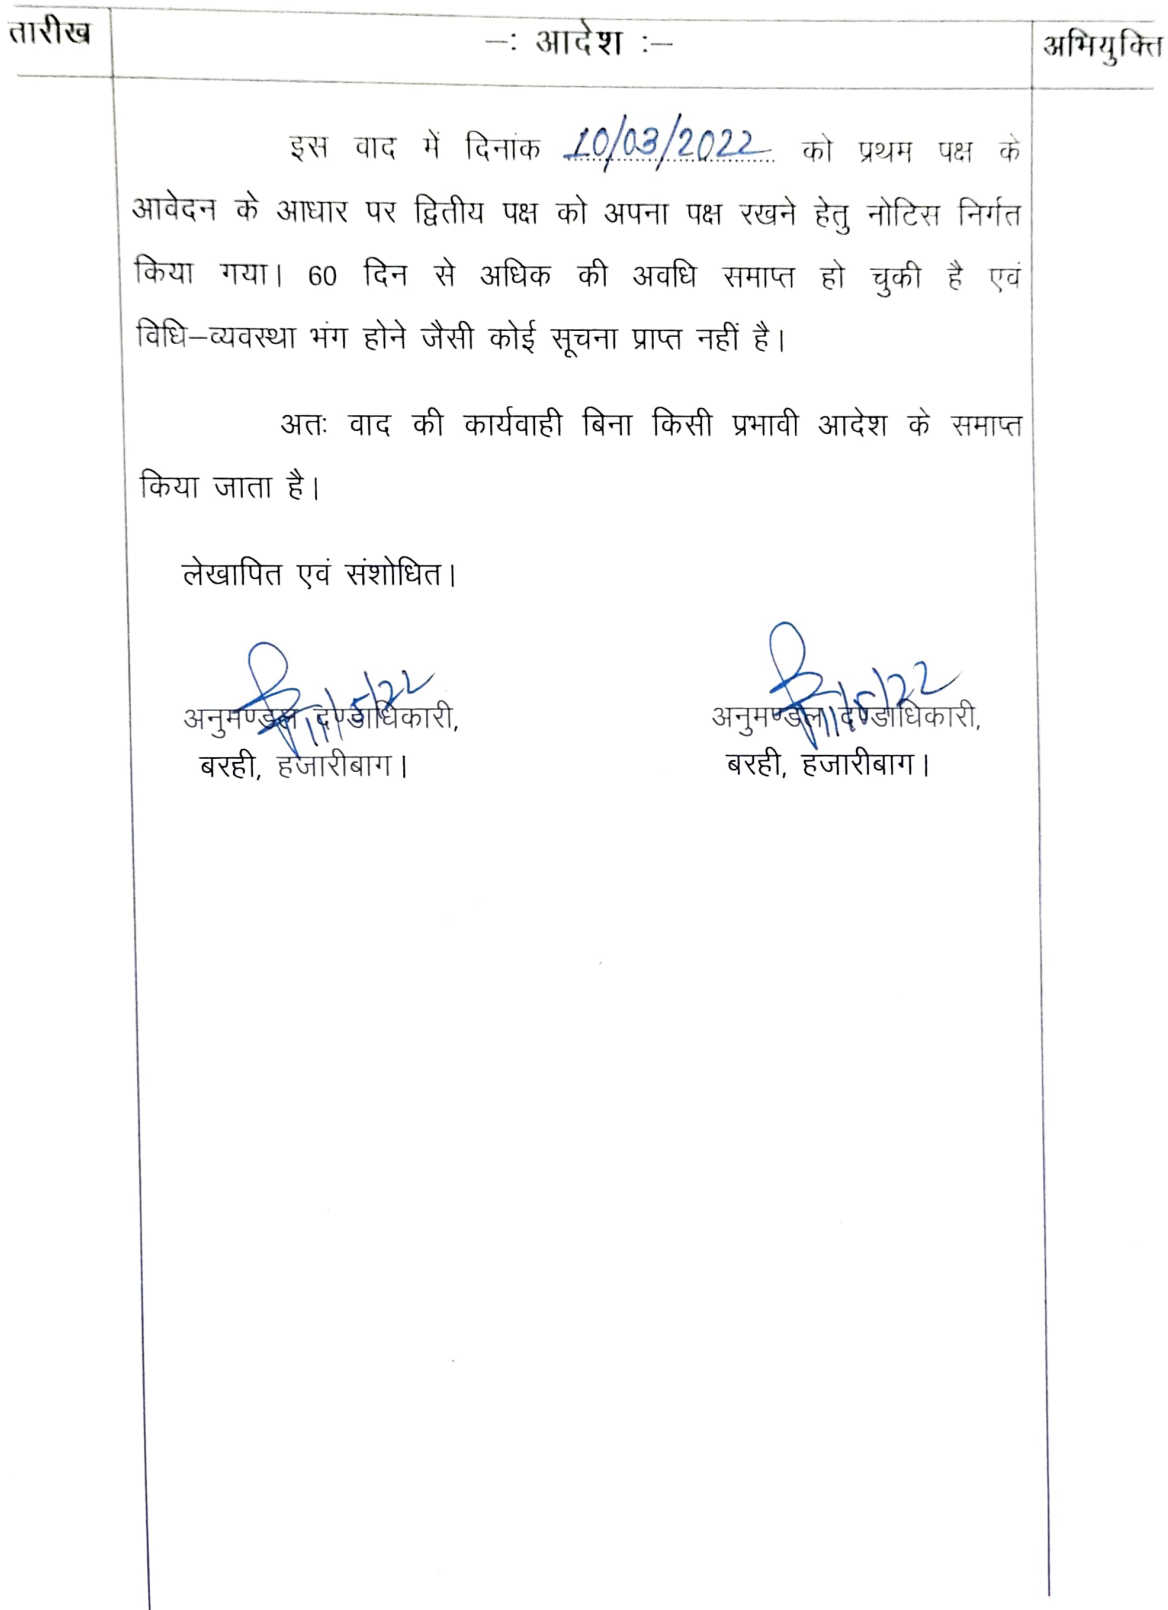 तारीख
–: आदेश :–
अभियुक्ति
इस वाद में दिनांक 10/03/2022 को प्रथम पक्ष के
आवेदन के आधार पर द्वितीय पक्ष को अपना पक्ष रखने हेतु नोटिस निर्गत
किया गया। 60 दिन से अधिक की अवधि समाप्त हो चुकी है एवं
विधि–व्यवस्था भंग होने जैसी कोई सूचना प्राप्त नहीं है।
अतः वाद की कार्यवाही बिना किसी प्रभावी आदेश के समाप्त
किया जाता है।
लेखापित एवं संशोधित।
11/5/22
11/5/22
अनुमण्डल दण्डाधिकारी,
अनुमण्डल दण्डाधिकारी,
बरही, हजारीबाग।
बरही, हजारीबाग।